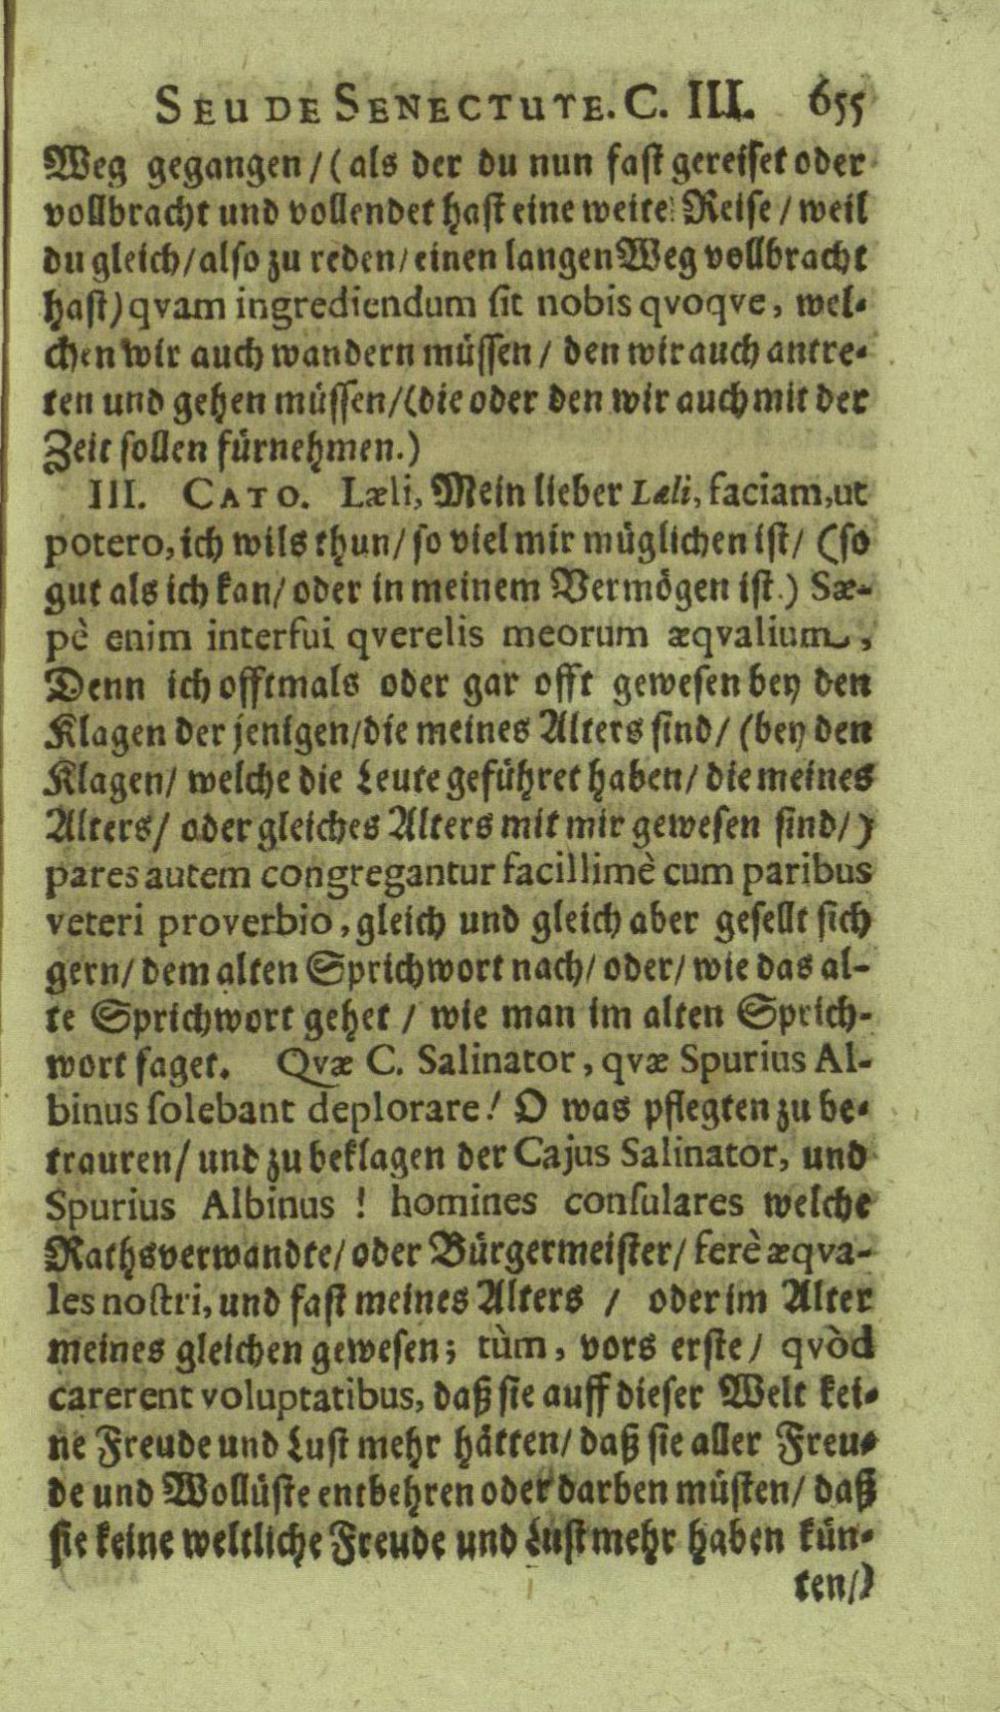 SEU DE SENECTUTE. C. III. 655
Weg gegangen / (als der du nun fast gereiset oder
vollbracht und vollendet hast eine weite Reise / weil
du gleich / also zu reden / einen langen Weg vollbracht
hast) qvam ingrediendum sit nobis qvoqve, wel-
chen wir auch wandern müssen / den wir auch antre-
ten und gehen müssen / (die oder den wir auch mit der
Zeit sollen fürnehmen.)
III. CATO. Læli, Mein lieber Læli, faciam, ut
potero, ich wils thun / so viel mir müglichen ist / (so
gut als ich kan / oder in meinem Vermögen ist.) Sæ-
pè enim interfui qverelis meorum æqvalium,
Denn ich offtmals oder gar offt gewesen bey den
Klagen der jenigen / die meines Alters sind / (bey den
Klagen / welche die Leute geführet haben / die meines
Alters / oder gleiches Alters mit mir gewesen sind /)
pares autem congregantur facillimè cum paribus
veteri proverbio, gleich und gleich aber gesellt sich
gern / dem alten Sprichwort nach / oder / wie das al-
te Sprichwort gehet / wie man im alten Sprich-
wort saget. Qvæ C. Salinator, qvæ Spurius Al-
binus solebant deplorare! O was pflegten zu be-
trauren / und zu beklagen der Cajus Salinator, und
Spurius Albinus ! homines consulares welche
Rathsverwandte / oder Bürgermeister / ferè æqva-
les nostri, und fast meines Alters / oder im Alter
meines gleichen gewesen; tùm, vors erste / qvòd
carerent voluptatibus, daß sie auff dieser Welt kei-
ne Freude und Lust mehr hätten / daß sie aller Freu-
de und Wollüste entbehren oder darben müsten / daß
sie keine weltliche Freude und Lust mehr haben kün-
ten /)